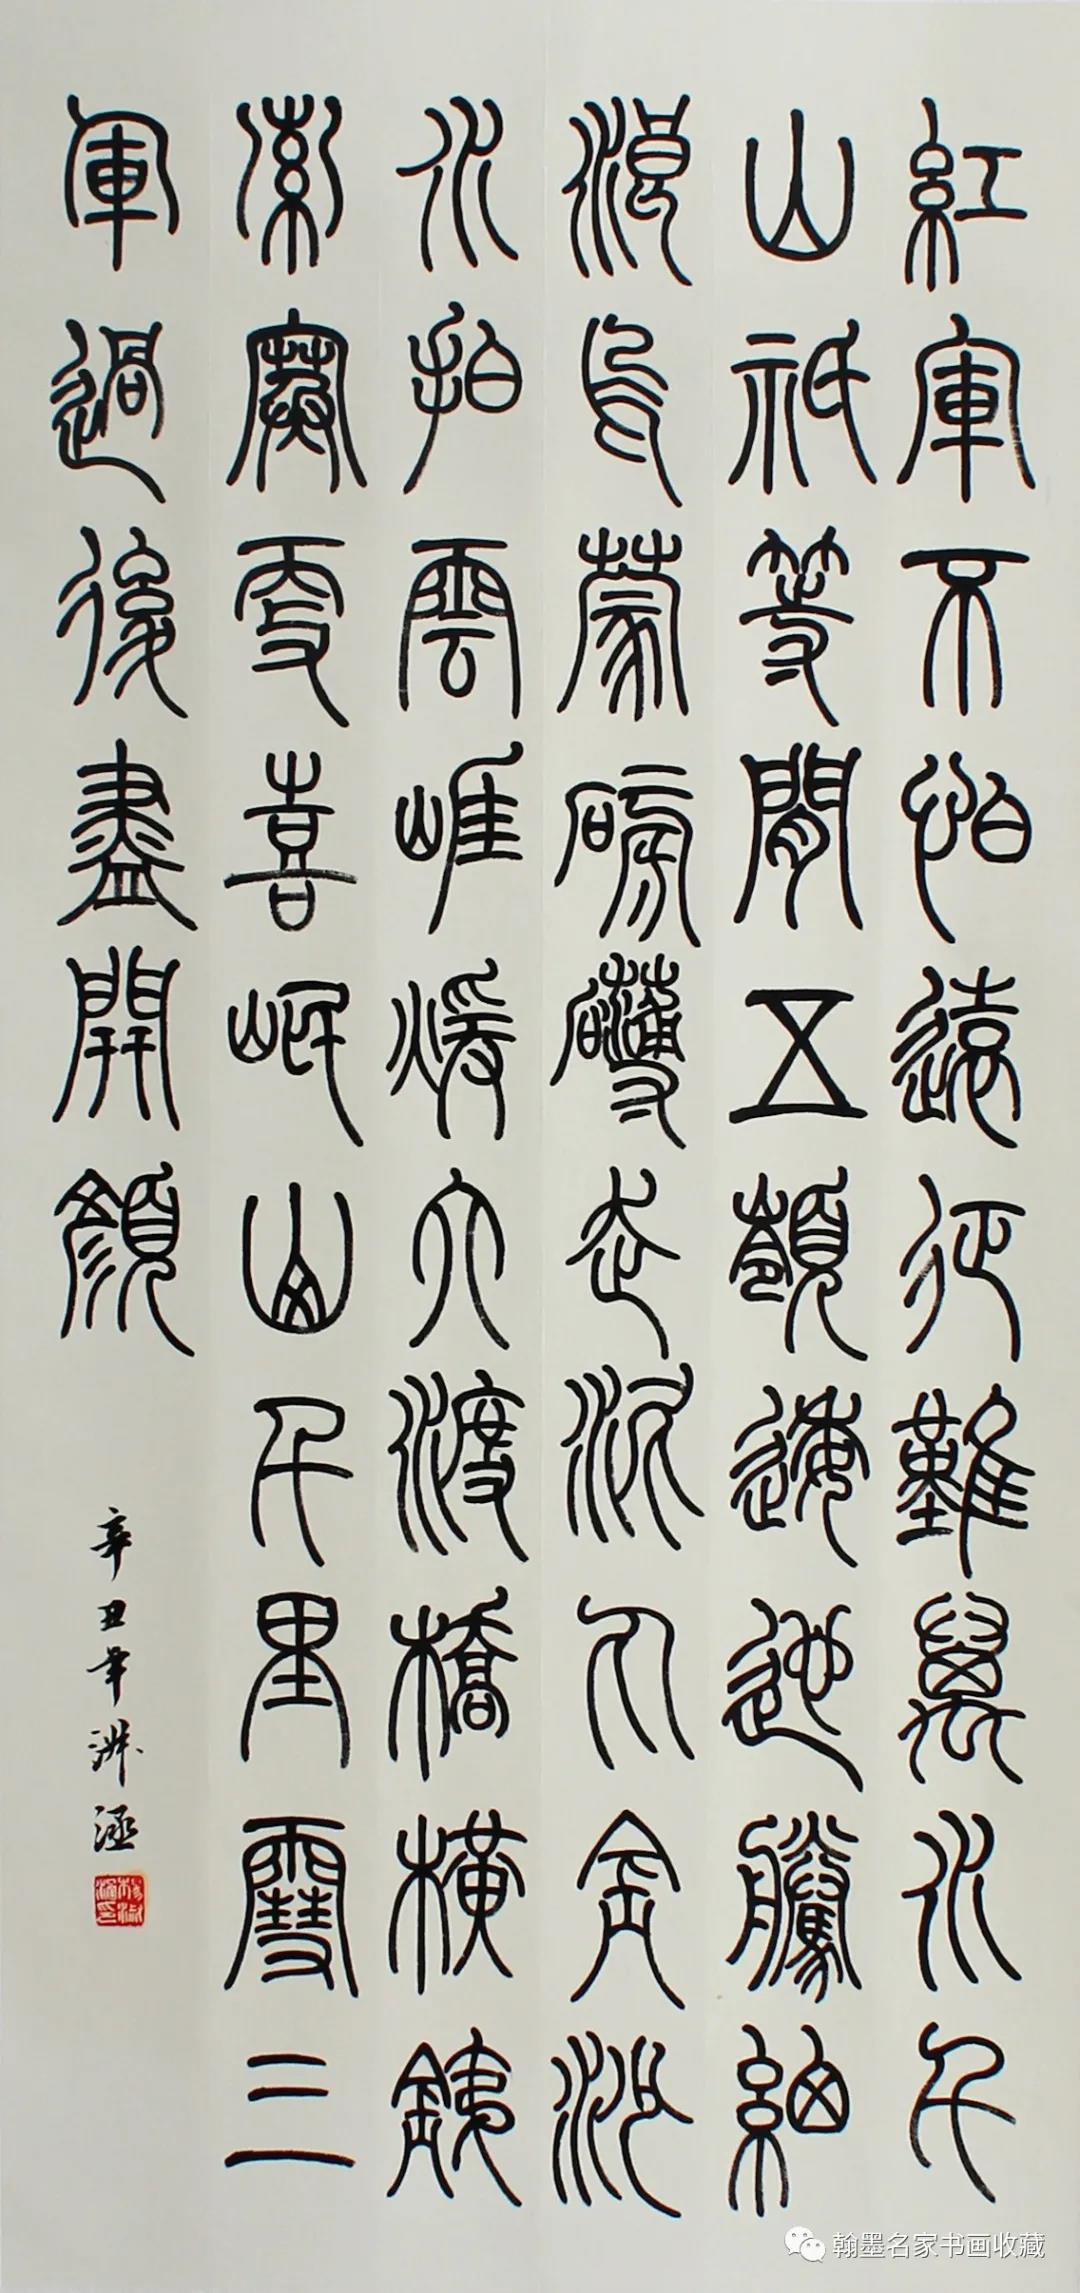 紅軍不怕遠征難萬水千
山祇等閒五嶺逶迤騰細
浪烏蒙磅礴走泥丸金沙
水拍雲崖煖大渡橋橫鐵
索寒更喜岷山千里雪三
軍過後盡開顏
辛丑年淑涵
翰墨名家书画收藏